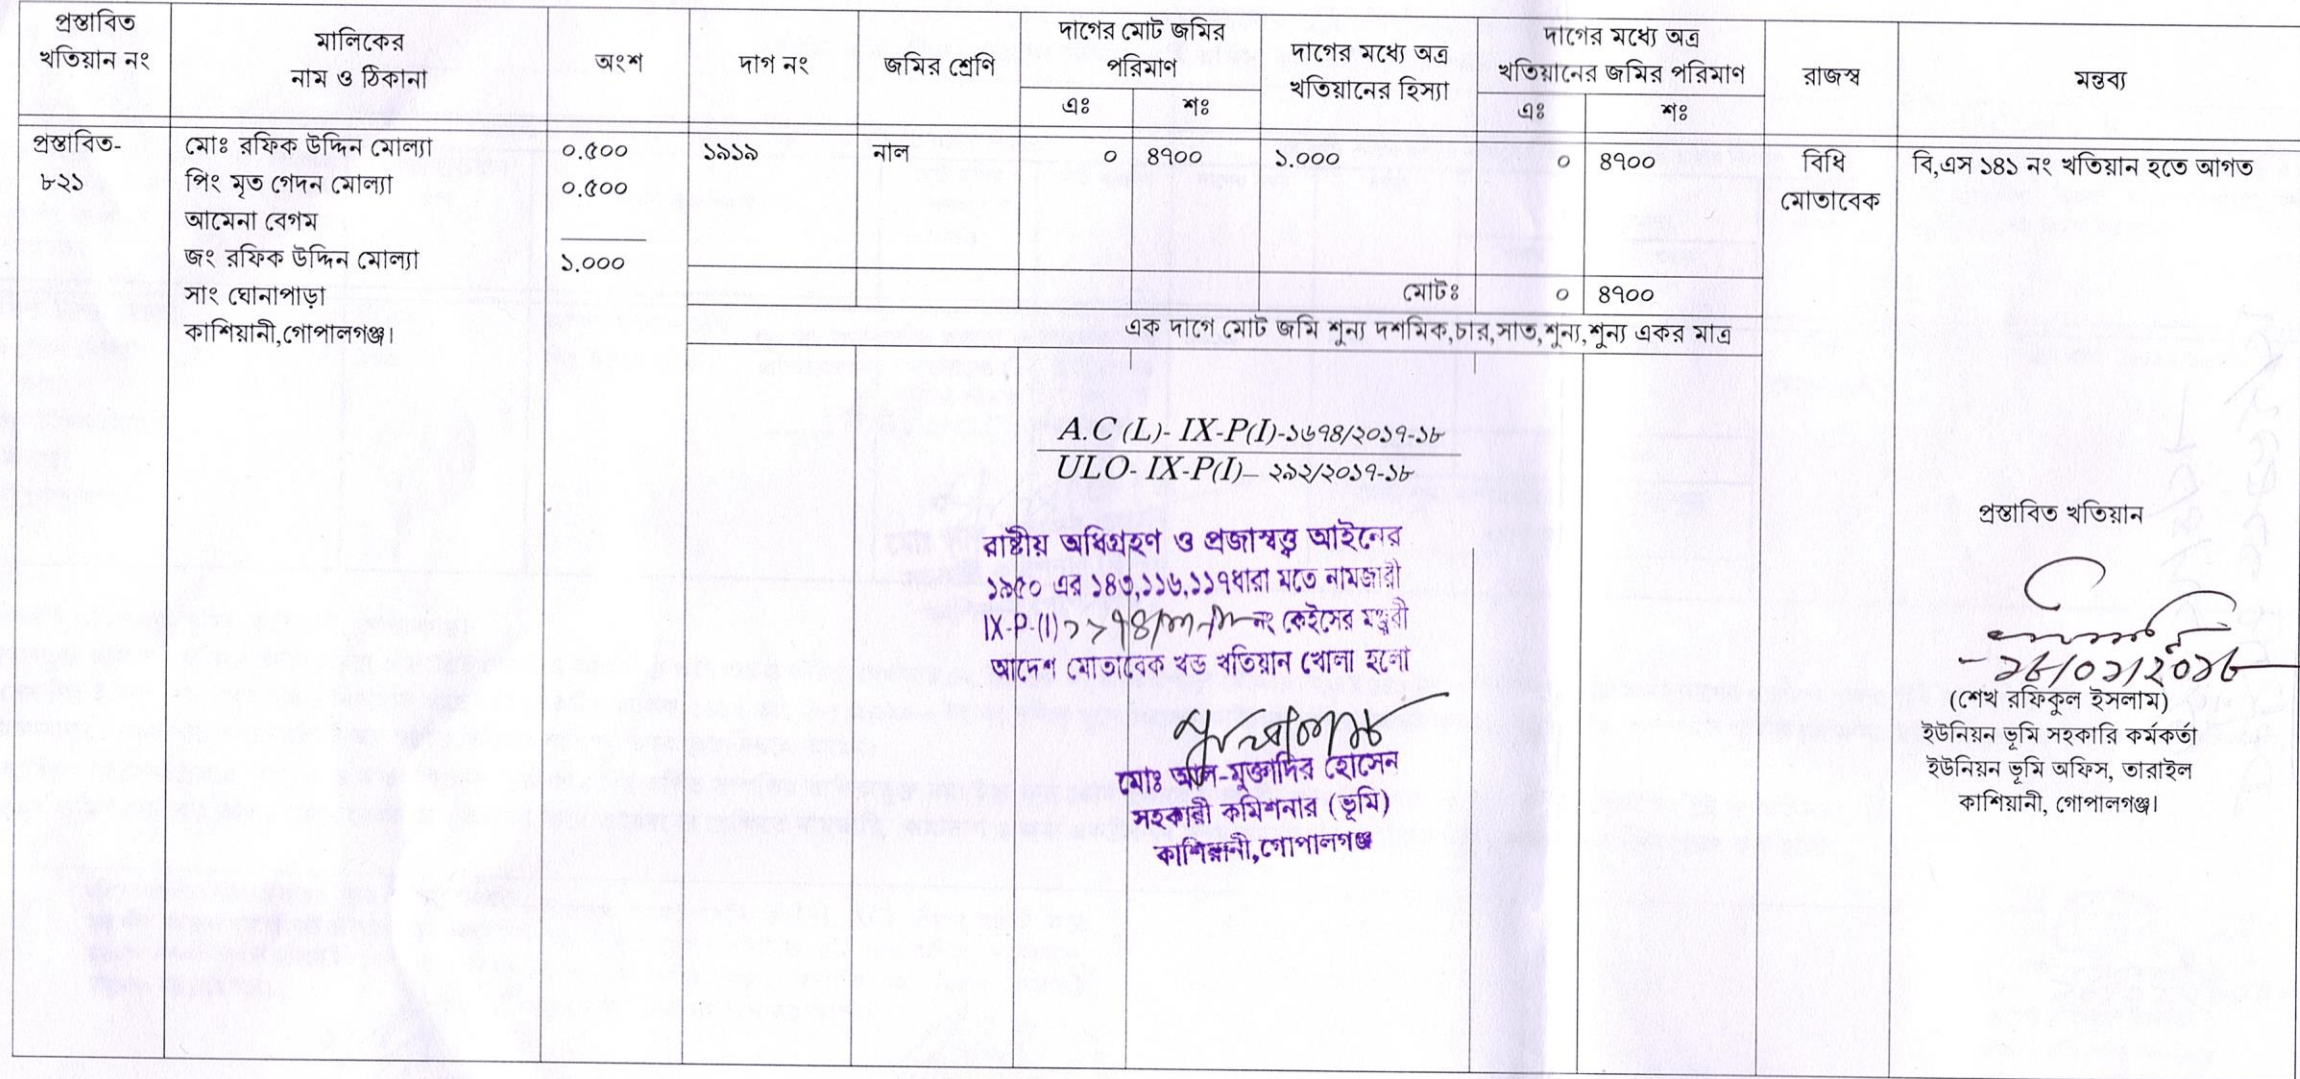 প্রস্তাবিত
খতিয়ান নং
মালিকের
নাম ও ঠিকানা
অংশ
দাগ নং
জমির শ্রেণি
দাগের মোট জমির
পরিমাণ
এঃ
শঃ
দাগের মধ্যে অত্র
খতিয়ানের হিস্যা
দাগের মধ্যে অত্র
খতিয়ানের জমির পরিমাণ
এঃ
শঃ
রাজস্ব
মন্তব্য
প্রস্তাবিত-
৮২১
মোঃ রফিক উদ্দিন মোল্যা
পিং মৃত গেদন মোল্যা
আমেনা বেগম
জং রফিক উদ্দিন মোল্যা
সাং ঘোনাপাড়া
কাশিয়ানী,গোপালগঞ্জ।
০.৫০০
০.৫০০
১.০০০
১৯১৯
নাল
০
৪৭০০
১.০০০
০
৪৭০০
বিধি
মোতাবেক
বি,এস ১৪১ নং খতিয়ান হতে আগত
মোটঃ
০
৪৭০০
এক দাগে মোট জমি শুন্য দশমিক,চার,সাত,শুন্য,শুন্য একর মাত্র
A.C (L)- IX-P(I)-১৬৭৪/২০১৭-১৮
ULO- IX-P(I)– ২৯২/২০১৭-১৮
রাষ্টীয় অধিগ্রহণ ও প্রজাস্বত্ত্ব আইনের
১৯৫০ এর ১৪৩,১১৬,১১৭ধারা মতে নামজারী
IX-P-(I) নং কেইসের মঞ্জুরী
আদেশ মোতাবেক খন্ড খতিয়ান খোলা হলো
মোঃ আল-মুক্তাদির হোসেন
সহকারী কমিশনার (ভূমি)
কাশিয়ানী,গোপালগঞ্জ
প্রস্তাবিত খতিয়ান
(শেখ রফিকুল ইসলাম)
ইউনিয়ন ভূমি সহকারি কর্মকর্তা
ইউনিয়ন ভূমি অফিস, তারাইল
কাশিয়ানী, গোপালগঞ্জ।